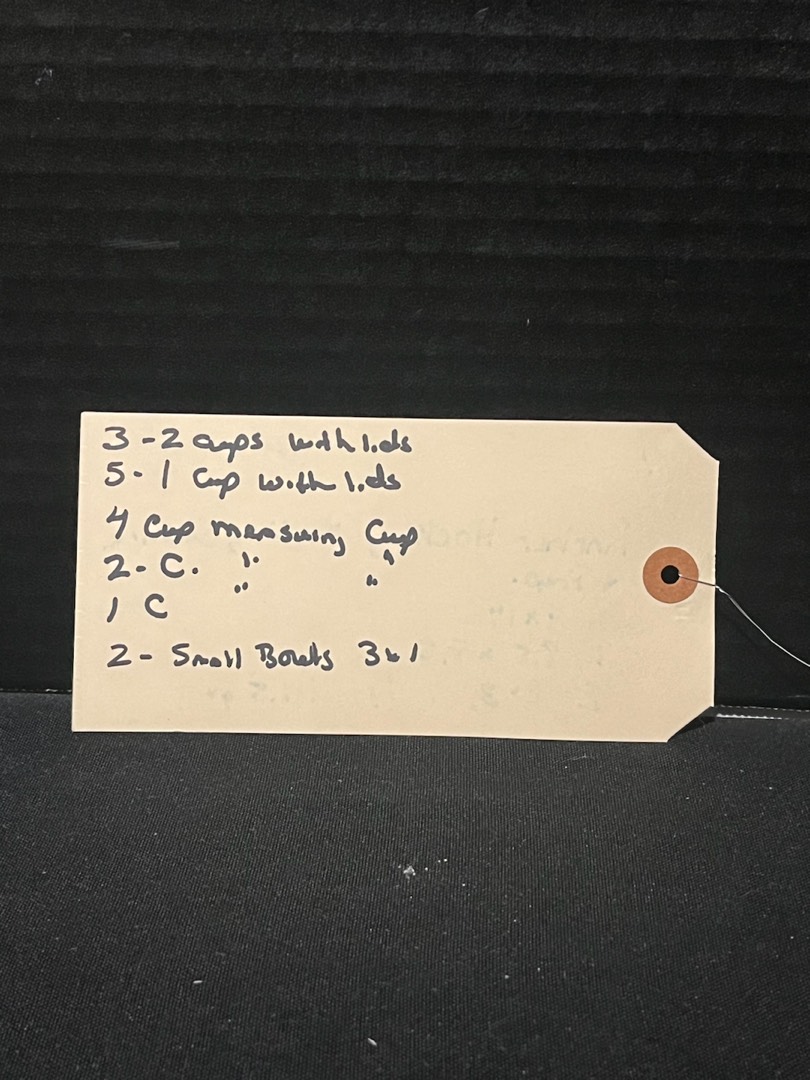 3 - 2 cups with lids
5 - 1 Cup with lids
4 Cup measuring Cup
2 - C. " "
1 C " "
2 - Small Bowls 3x1